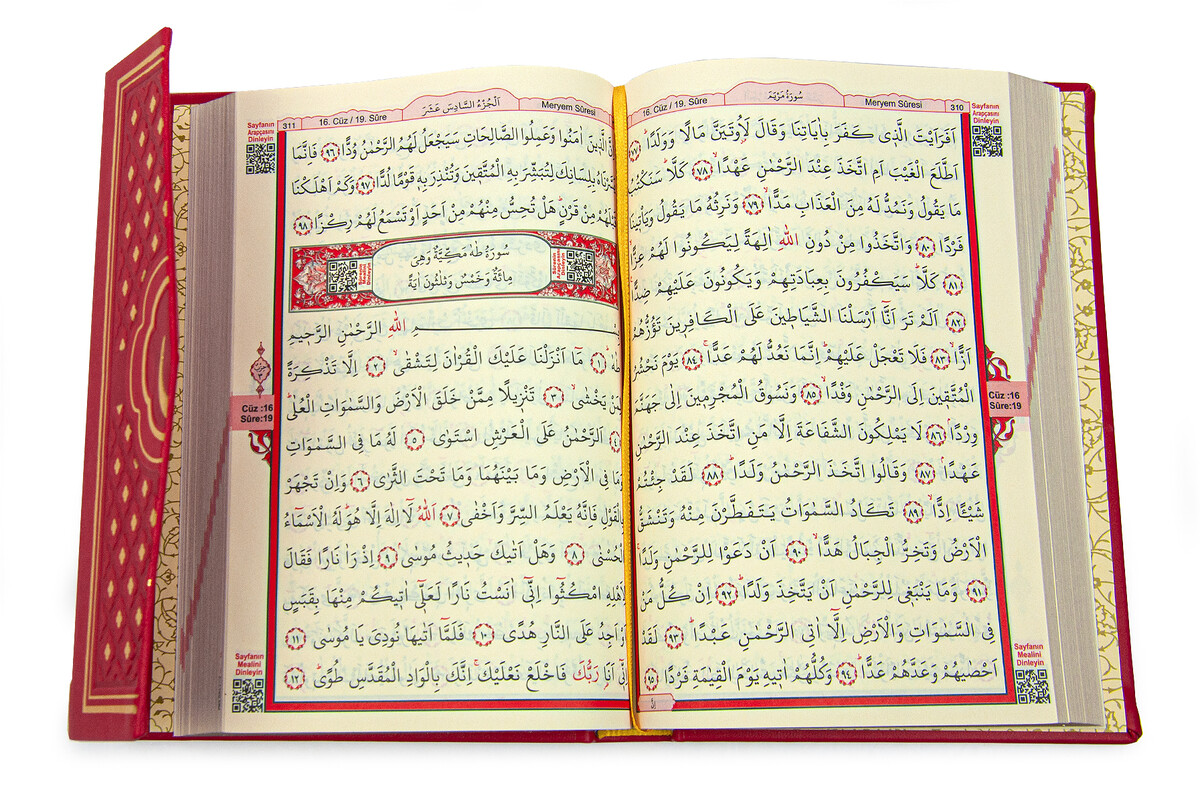 16. Cüz / 19. Sûre
سُورَةُ مَرْيَمَ
Meryem Sûresi
310
Sayfanın
Arapçasını
Dinleyin
اَفَرَاَيْتَ الَّذ۪ي كَفَرَ بِاٰيَاتِنَا وَقَالَ لَاُو۫تَيَنَّ مَالًا وَوَلَدًاۜ ﴿٧٧﴾
اَطَّلَعَ الْغَيْبَ اَمِ اتَّخَذَ عِنْدَ الرَّحْمٰنِ عَهْدًاۙ ﴿٧٨﴾ كَلَّاۜ سَنَكْتُبُ
مَا يَقُولُ وَنَمُدُّ لَهُ مِنَ الْعَذَابِ مَدًّاۙ ﴿٧٩﴾ وَنَرِثُهُ مَا يَقُولُ وَيَأْت۪ينَا
فَرْدًا ﴿٨٠﴾ وَاتَّخَذُوا مِنْ دُونِ اللّٰهِ اٰلِهَةً لِيَكُونُوا لَهُمْ عِزًّاۙ
﴿٨١﴾ كَلَّاۜ سَيَكْفُرُونَ بِعِبَادَتِهِمْ وَيَكُونُونَ عَلَيْهِمْ ضِدًّا۟
﴿٨٢﴾ اَلَمْ تَرَ اَنَّٓا اَرْسَلْنَا الشَّيَاط۪ينَ عَلَى الْكَافِر۪ينَ تَؤُزُّهُمْ
اَزًّاۙ ﴿٨٣﴾ فَلَا تَعْجَلْ عَلَيْهِمْۜ اِنَّمَا نَعُدُّ لَهُمْ عَدًّاۚ ﴿٨٤﴾ يَوْمَ نَحْشُرُ
الْمُتَّق۪ينَ اِلَى الرَّحْمٰنِ وَفْدًاۙ ﴿٨٥﴾ وَنَسُوقُ الْمُجْرِم۪ينَ اِلٰى جَهَنَّمَ
وِرْدًاۢ ﴿٨٦﴾ لَا يَمْلِكُونَ الشَّفَاعَةَ اِلَّا مَنِ اتَّخَذَ عِنْدَ الرَّحْمٰنِ
عَهْدًاۢ ﴿٨٧﴾ وَقَالُوا اتَّخَذَ الرَّحْمٰنُ وَلَدًاۜ ﴿٨٨﴾ لَقَدْ جِئْتُمْ
شَيْـًٔا اِدًّاۙ ﴿٨٩﴾ تَكَادُ السَّمٰوَاتُ يَتَفَطَّرْنَ مِنْهُ وَتَنْشَقُّ
الْاَرْضُ وَتَخِرُّ الْجِبَالُ هَدًّاۙ ﴿٩٠﴾ اَنْ دَعَوْا لِلرَّحْمٰنِ وَلَدًاۚ
﴿٩١﴾ وَمَا يَنْبَغ۪ي لِلرَّحْمٰنِ اَنْ يَتَّخِذَ وَلَدًاۜ ﴿٩٢﴾ اِنْ كُلُّ مَنْ
فِي السَّمٰوَاتِ وَالْاَرْضِ اِلَّٓا اٰتِي الرَّحْمٰنِ عَبْدًاۜ ﴿٩٣﴾ لَقَدْ
اَحْصٰيهُمْ وَعَدَّهُمْ عَدًّاۜ ﴿٩٤﴾ وَكُلُّهُمْ اٰت۪يهِ يَوْمَ الْقِيٰمَةِ فَرْدًا ﴿٩٥﴾
Cüz :16
Sûre:19
Sayfanın
Mealini
Dinleyin
311
16. Cüz / 19. Sûre
اَلْجُزْءُ السَّادِسَ عَشَرَ
Meryem Sûresi
Sayfanın
Arapçasını
Dinleyin
الَّذ۪ينَ اٰمَنُوا وَعَمِلُوا الصَّالِحَاتِ سَيَجْعَلُ لَهُمُ الرَّحْمٰنُ وُدًّا ﴿٩٦﴾ فَاِنَّمَا
يَسَّرْنَاهُ بِلِسَانِكَ لِتُبَشِّرَ بِهِ الْمُتَّق۪ينَ وَتُنْذِرَ بِه۪ قَوْمًا لُدًّا ﴿٩٧﴾ وَكَمْ اَهْلَكْنَا
قَبْلَهُمْ مِنْ قَرْنٍۜ هَلْ تُحِسُّ مِنْهُمْ مِنْ اَحَدٍ اَوْ تَسْمَعُ لَهُمْ رِكْزًا ﴿٩٨﴾
سُورَةُ طٰهٰ مَكِّيَّةٌ وَهِيَ
مِائَةٌ وَخَمْسٌ وَثَلٰثُونَ اٰيَةً
بِسْمِ اللّٰهِ الرَّحْمٰنِ الرَّح۪يمِ
طٰهٰۜ ﴿١﴾ مَٓا اَنْزَلْنَا عَلَيْكَ الْقُرْاٰنَ لِتَشْقٰىۙ ﴿٢﴾ اِلَّا تَذْكِرَةً
لِمَنْ يَخْشٰىۙ ﴿٣﴾ تَنْز۪يلًا مِمَّنْ خَلَقَ الْاَرْضَ وَالسَّمٰوَاتِ الْعُلٰىۜ
﴿٤﴾ اَلرَّحْمٰنُ عَلَى الْعَرْشِ اسْتَوٰى ﴿٥﴾ لَهُ مَا فِي السَّمٰوَاتِ
وَمَا فِي الْاَرْضِ وَمَا بَيْنَهُمَا وَمَا تَحْتَ الثَّرٰى ﴿٦﴾ وَاِنْ تَجْهَرْ
بِالْقَوْلِ فَاِنَّهُ يَعْلَمُ السِّرَّ وَاَخْفٰى ﴿٧﴾ اَللّٰهُ لَٓا اِلٰهَ اِلَّا هُوَۜ لَهُ الْاَسْمَٓاءُ
الْحُسْنٰى ﴿٨﴾ وَهَلْ اَتٰيكَ حَد۪يثُ مُوسٰىۢ ﴿٩﴾ اِذْ رَاٰ نَارًا فَقَالَ
لِاَهْلِهِ امْكُثُٓوا اِنّ۪ٓي اٰنَسْتُ نَارًا لَعَلّ۪ٓي اٰت۪يكُمْ مِنْهَا بِقَبَسٍ
اَوْ اَجِدُ عَلَى النَّارِ هُدًى ﴿١٠﴾ فَلَمَّٓا اَتٰيهَا نُودِيَ يَا مُوسٰى ﴿١١﴾
اِنّ۪ٓي اَنَا۬ رَبُّكَ فَاخْلَعْ نَعْلَيْكَۚ اِنَّكَ بِالْوَادِ الْمُقَدَّسِ طُوًىۜ ﴿١٢﴾
Cüz :16
Sûre:19
Sayfanın
Mealini
Dinleyin